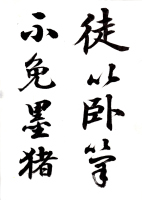 徒以卧笔
不免墨猪